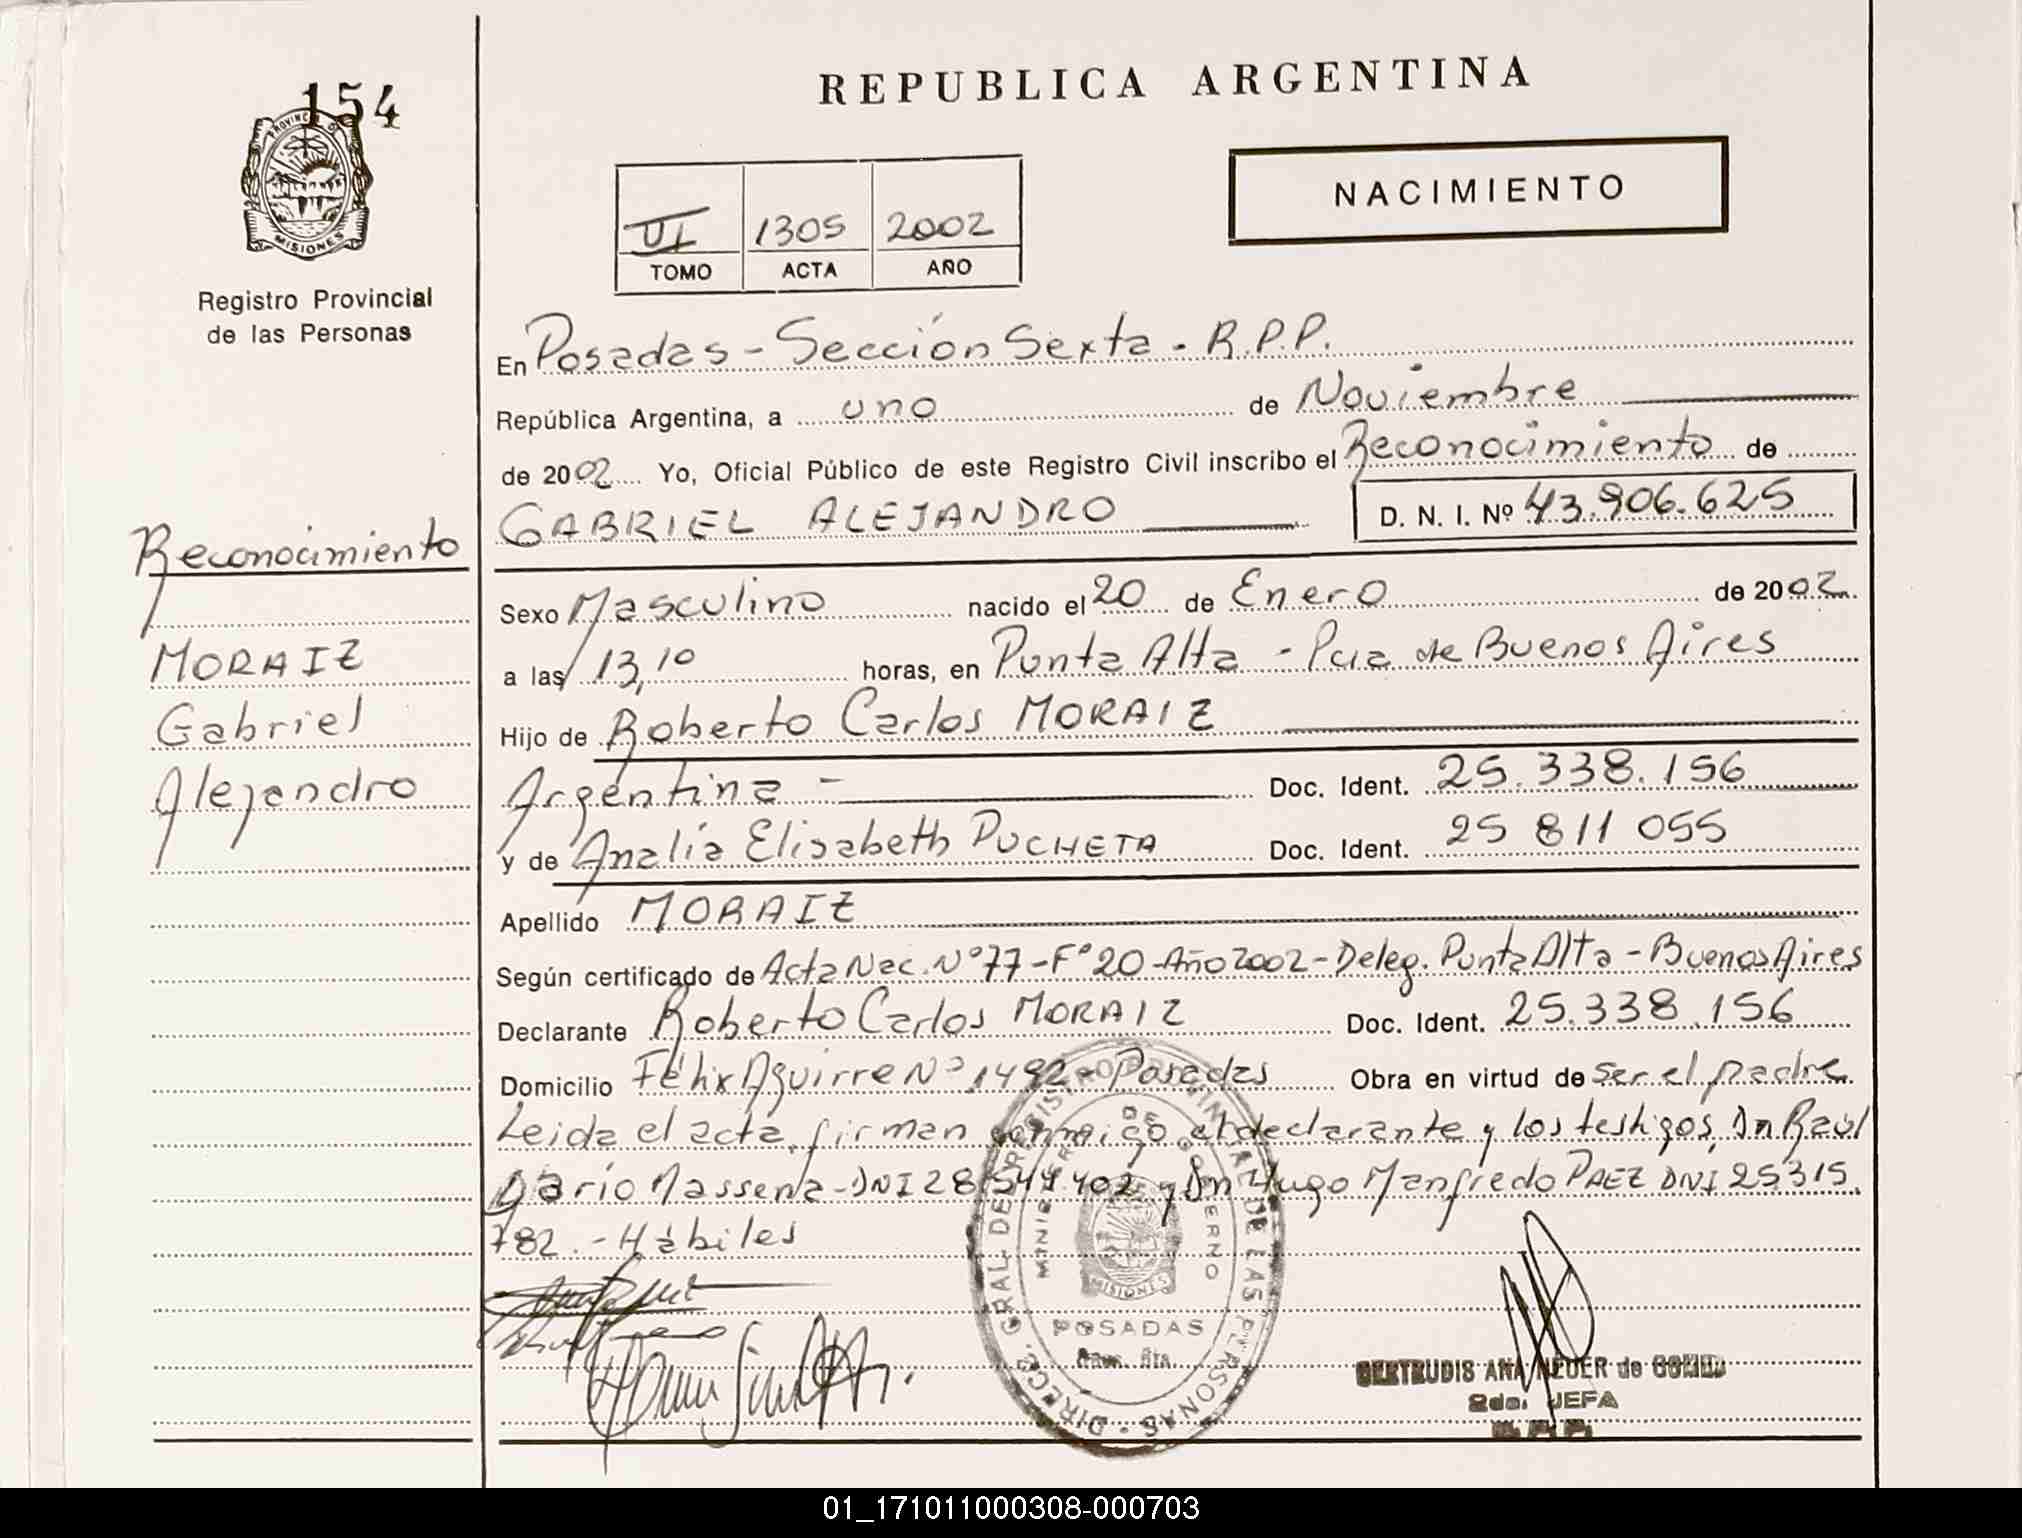 154
PROVINCIA DE MISIONES
Registro Provincial
de las Personas
REPUBLICA ARGENTINA
NACIMIENTO
VI 1305 2002
TOMO ACTA AÑO
En Posadas - Sección Sexta - R.P.P.
República Argentina, a uno de Noviembre
de 2002 Yo, Oficial Público de este Registro Civil inscribo el Reconocimiento de
GABRIEL ALEJANDRO D. N. I. Nº 43.906.625
Reconocimiento
MORAIZ
Gabriel
Alejandro
Sexo Masculino nacido el 20 de Enero de 2002
a las 13,10 horas, en Punta Alta - Pcia de Buenos Aires
Hijo de Roberto Carlos MORAIZ
Argentina - Doc. Ident. 25.338.156
y de Analía Elisabeth PUCHETA Doc. Ident. 25 811 055
Apellido MORAIZ
Según certificado de Acta Nac. Nº 77 - Fº 20 - Año 2002 - Deleg. Punta Alta - Buenos Aires
Declarante Roberto Carlos MORAIZ Doc. Ident. 25.338.156
Domicilio Félix Aguirre Nº 1492 - Posadas Obra en virtud de ser el padre
Leida el acta, firman conmigo el declarante y los testigos, Dn Raúl
Darío Massena - DNI 28 544 402 y Dn Hugo Manfredo PAEZ DNI 25 315
782. - Hábiles
DIRECC. GRAL. DEL REGISTRO PROVINCIAL DE LAS PERSONAS
MINISTERIO DE GOBIERNO
MISIONES
POSADAS
GERTRUDIS ANA NEUER de
2da. JEFA
R.P.P.
01_171011000308-000703